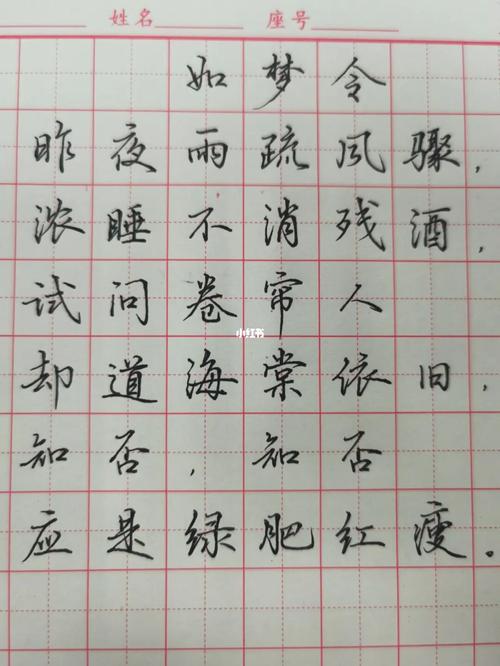 姓名 座号
如梦令
昨夜雨疏风骤，
浓睡不消残酒，
试问卷帘人
小红书
却道海棠依旧，
知否，知否
应是绿肥红瘦。